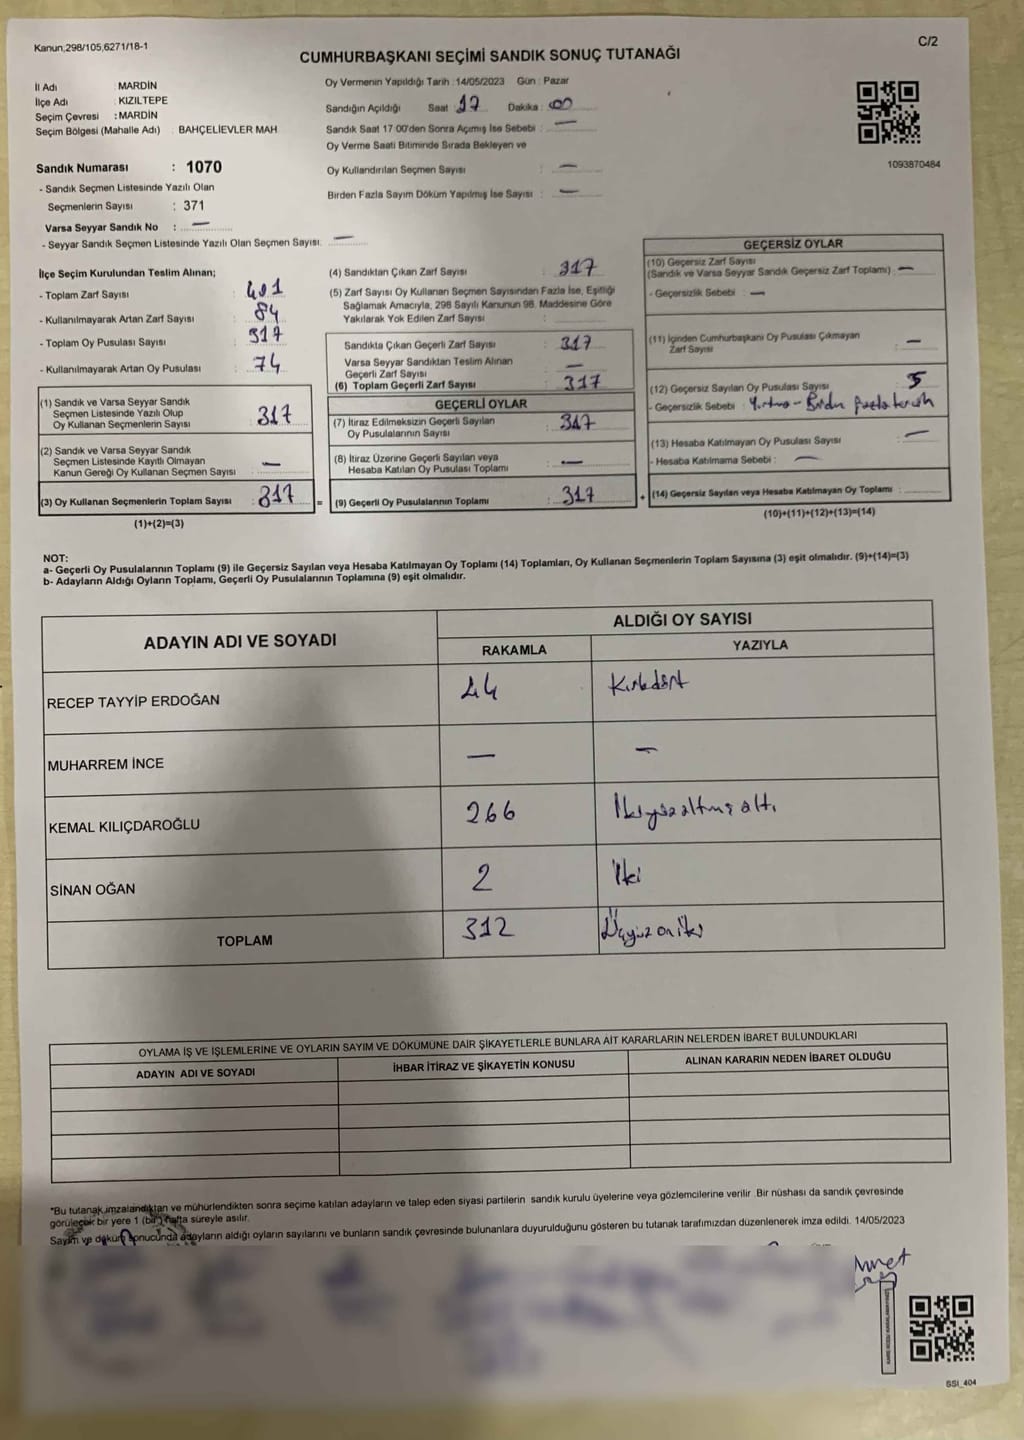 Kanun;298/105,6271/18-1
C/2
CUMHURBAŞKANI SEÇİMİ SANDIK SONUÇ TUTANAĞI
İl Adı : MARDİN
İlçe Adı : KIZILTEPE
Seçim Çevresi : MARDİN
Seçim Bölgesi (Mahalle Adı) : BAHÇELİEVLER MAH
Oy Vermenin Yapıldığı Tarih : 14/05/2023 Gün : Pazar
Sandığın Açıldığı Saat : 17 Dakika : 00
Sandık Saat 17 00'den Sonra Açımış İse Sebebi : —
Oy Verme Saati Bitiminde Sırada Bekleyen ve
Oy Kullandırılan Seçmen Sayısı : —
Birden Fazla Sayım Döküm Yapılmış İse Sayısı : —
1093870484
Sandık Numarası : 1070
- Sandık Seçmen Listesinde Yazılı Olan
Seçmenlerin Sayısı : 371
Varsa Seyyar Sandık No : —
- Seyyar Sandık Seçmen Listesinde Yazılı Olan Seçmen Sayısı. —
İlçe Seçim Kurulundan Teslim Alınan;
- Toplam Zarf Sayısı : 401
- Kullanılmayarak Artan Zarf Sayısı : 84
- Toplam Oy Pusulası Sayısı : 317
- Kullanılmayarak Artan Oy Pusulası : 74
(1) Sandık ve Varsa Seyyar Sandık
Seçmen Listesinde Yazılı Olup
Oy Kullanan Seçmenlerin Sayısı : 317
(2) Sandık ve Varsa Seyyar Sandık
Seçmen Listesinde Kayıtlı Olmayan
Kanun Gereği Oy Kullanan Seçmen Sayısı : —
(3) Oy Kullanan Seçmenlerin Toplam Sayısı : 317
(1)+(2)=(3)
(4) Sandıktan Çıkan Zarf Sayısı : 317
(5) Zarf Sayısı Oy Kullanan Seçmen Sayısından Fazla İse, Eşitliği
Sağlamak Amacıyla, 298 Sayılı Kanunun 98. Maddesine Göre
Yakılarak Yok Edilen Zarf Sayısı :
Sandıkta Çıkan Geçerli Zarf Sayısı : 317
Varsa Seyyar Sandıktan Teslim Alınan
Geçerli Zarf Sayısı : —
(6) Toplam Geçerli Zarf Sayısı : 317
GEÇERLİ OYLAR
(7) İtiraz Edilmeksizin Geçerli Sayılan
Oy Pusulalarının Sayısı : 317
(8) İtiraz Üzerine Geçerli Sayılan veya
Hesaba Katılan Oy Pusulası Toplamı : —
= (9) Geçerli Oy Pusulalarının Toplamı : 317
GEÇERSİZ OYLAR
(10) Geçersiz Zarf Sayısı
(Sandık ve Varsa Seyyar Sandık Geçersiz Zarf Toplamı) : —
- Geçersizlik Sebebi : —
(11) İçinden Cumhurbaşkanı Oy Pusulası Çıkmayan
Zarf Sayısı : —
(12) Geçersiz Sayılan Oy Pusulası Sayısı : 5
- Geçersizlik Sebebi : Yırtma - Birden fazla tercih
(13) Hesaba Katılmayan Oy Pusulası Sayısı : —
- Hesaba Katılmama Sebebi : —
+ (14) Geçersiz Sayılan veya Hesaba Katılmayan Oy Toplamı :
(10)+(11)+(12)+(13)=(14)
NOT:
a- Geçerli Oy Pusulalarının Toplamı (9) ile Geçersiz Sayılan veya Hesaba Katılmayan Oy Toplamı (14) Toplamları, Oy Kullanan Seçmenlerin Toplam Sayısına (3) eşit olmalıdır. (9)+(14)=(3)
b- Adayların Aldığı Oyların Toplamı, Geçerli Oy Pusulalarının Toplamına (9) eşit olmalıdır.
ADAYIN ADI VE SOYADI
ALDIĞI OY SAYISI
RAKAMLA YAZIYLA
RECEP TAYYİP ERDOĞAN 44 Kırkdört
MUHARREM İNCE — —
KEMAL KILIÇDAROĞLU 266 İkiyüzaltmış altı
SİNAN OĞAN 2 İki
TOPLAM 312 Üçyüz oniki
OYLAMA İŞ VE İŞLEMLERİNE VE OYLARIN SAYIM VE DÖKÜMÜNE DAİR ŞİKAYETLERLE BUNLARA AİT KARARLARIN NELERDEN İBARET BULUNDUKLARI
ADAYIN ADI VE SOYADI İHBAR İTİRAZ VE ŞİKAYETİN KONUSU ALINAN KARARIN NEDEN İBARET OLDUĞU
*Bu tutanak,imzalandıktan ve mühürlendikten sonra seçime katılan adayların ve talep eden siyasi partilerin sandık kurulu üyelerine veya gözlemcilerine verilir .Bir nüshası da sandık çevresinde
görülecek bir yere 1 (bir) hafta süreyle asılır.
Sayım ve döküm sonucunda adayların aldığı oyların sayılarını ve bunların sandık çevresinde bulunanlara duyurulduğunu gösteren bu tutanak tarafımızdan düzenlenerek imza edildi. 14/05/2023
SSI_404